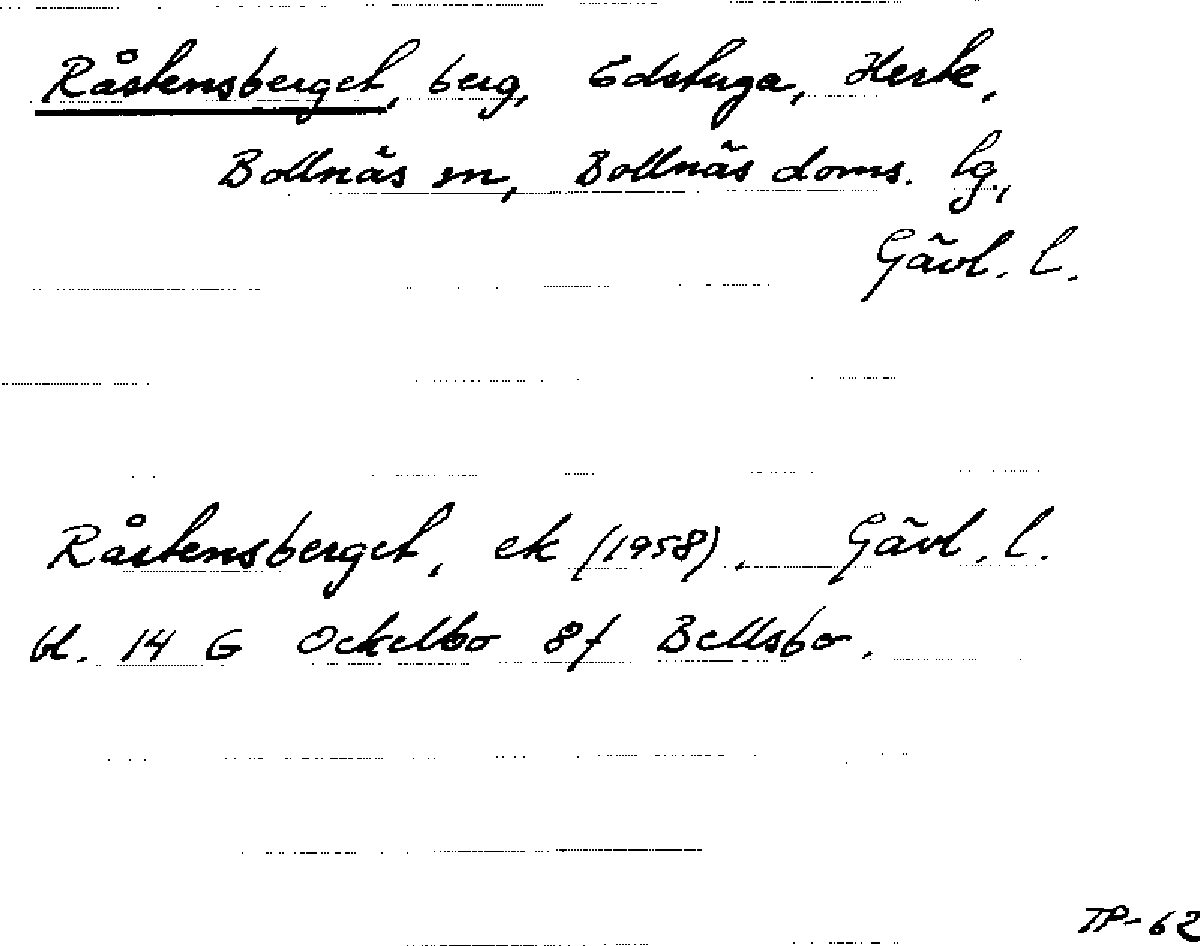 Råstensberget, berg, Edstuga, Herte,
Bollnäs sn, Bollnäs doms. lg,
Gävl. l.
Råstensberget, ek (1958), Gävl. l.
bl. 14 G Ockelbo 8f Bellsbo.
TP-62